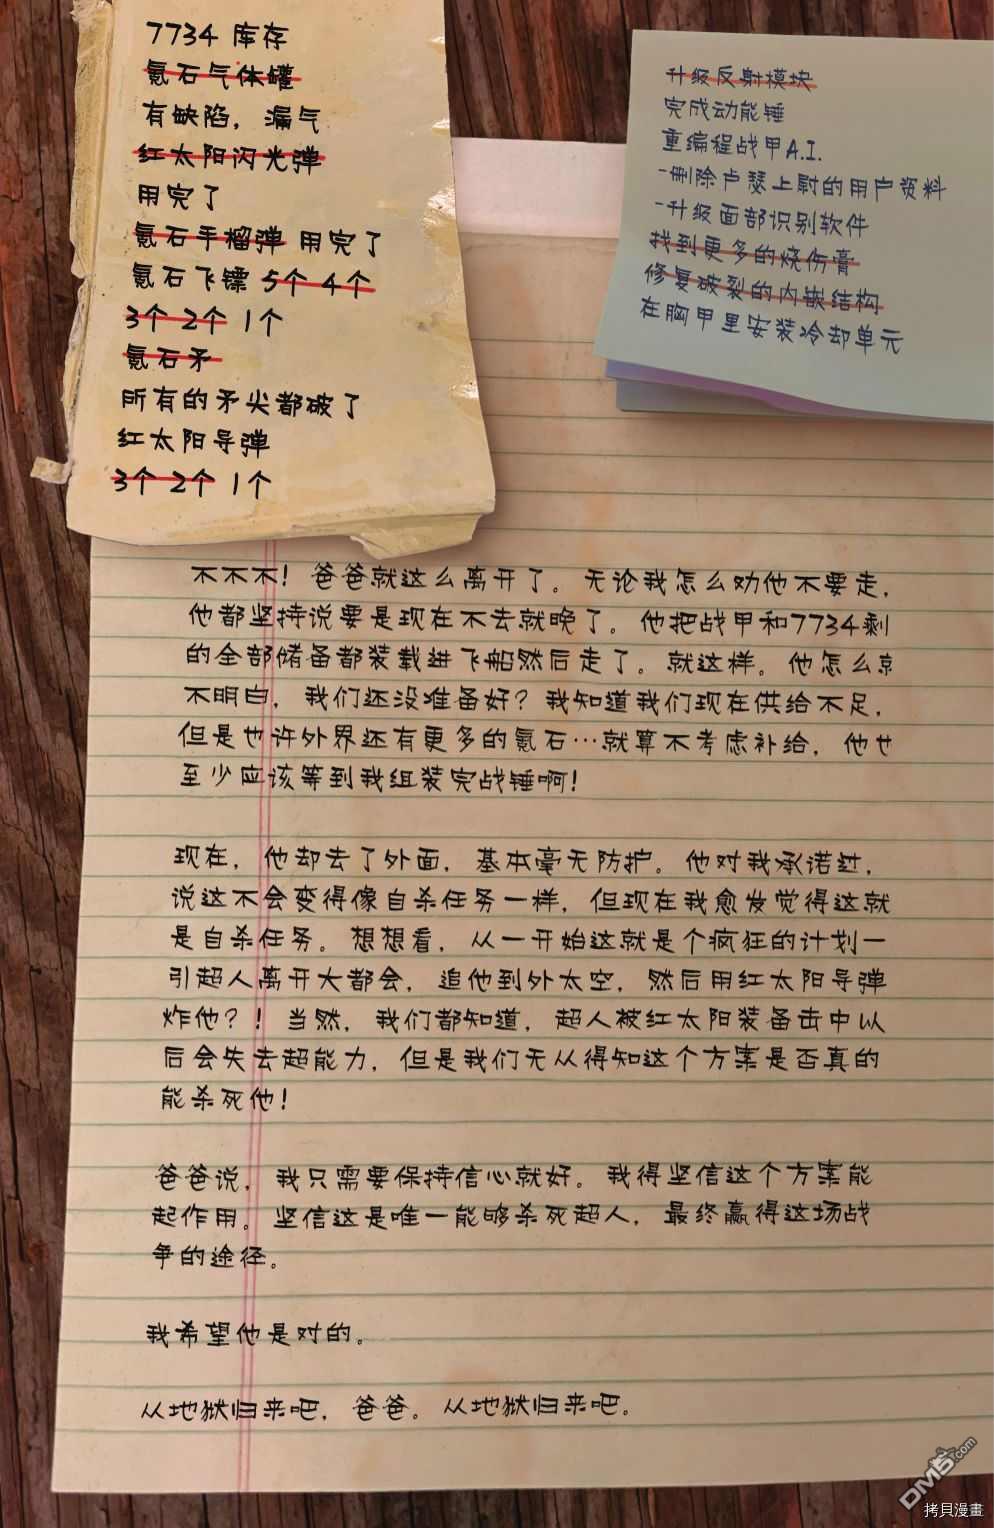 7734 库存
氪石气体罐
有缺陷，漏气
红太阳闪光弹
用完了
氪石手榴弹 用完了
氪石飞镖 5个 4个
3个 2个 1个
氪石矛
所有的矛尖都破了
红太阳导弹
3个 2个 1个
升级反射模块
完成动能锤
重编程战甲A.I.
-删除卢瑟上尉的用户资料
-升级面部识别软件
找到更多的烧伤膏
修复破裂的内嵌结构
在胸甲里安装冷却单元
不不不！爸爸就这么离开了。无论我怎么劝他不要走，
他都坚持说要是现在不去就晚了。他把战甲和7734剩
的全部储备都装载进飞船然后走了。就这样。他怎么就
不明白，我们还没准备好？我知道我们现在供给不足，
但是也许外界还有更多的氪石…就算不考虑补给，他也
至少应该等到我组装完战锤啊！
现在，他却去了外面，基本毫无防护。他对我承诺过，
说这不会变得像自杀任务一样，但现在我愈发觉得这就
是自杀任务。想想看，从一开始这就是个疯狂的计划—
引超人离开大都会，追他到外太空，然后用红太阳导弹
炸他？！当然，我们都知道，超人被红太阳装备击中以
后会失去超能力，但是我们无从得知这个方案是否真的
能杀死他！
爸爸说，我只需要保持信心就好。我得坚信这个方案能
起作用。坚信这是唯一能够杀死超人，最终赢得这场战
争的途径。
我希望他是对的。
从地狱归来吧，爸爸。从地狱归来吧。
DM5.com
拷贝漫畫